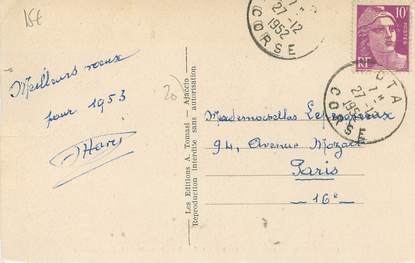 15€
Meilleurs vœux
pour 1953
20
Les Editions A. Tomasi - Ajaccio
Reproduction interdite sans autorisation
27-12
1952
CORSE
10F
RF
OTA
27-12
1952
CORSE
Mesdemoiselles
94, Avenue Mozart
Paris
-16e-